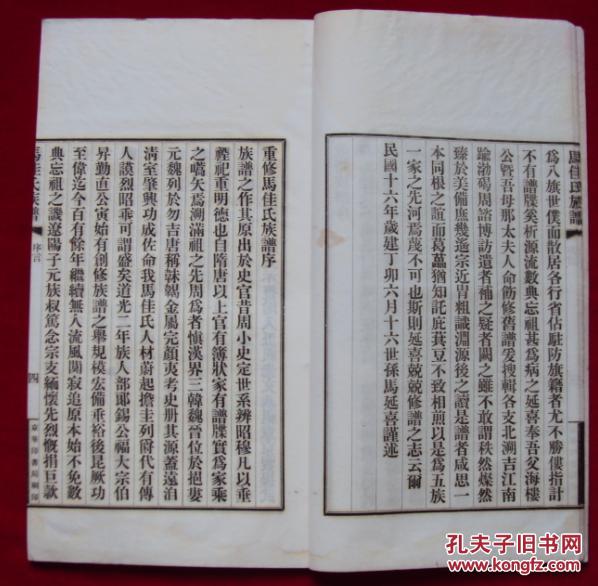 馬佳氏族譜
爲八旗世僕而散居各行省佔駐防旗籍者尤不勝僂指計
不有譜牒奚析源流數典忘祖甚爲病之延喜奉吾父海樓
公曁吾母那太夫人命飭修舊譜爰搜輯各支北溯吉江南
踰渤碣周諮博訪遺者補之疑者闕之雖不敢謂秩然燦然
臻於美備庶幾邇宗近胄粗識淵源後之讀是譜者咸思一
本同根之誼而葛藟猶知託庇萁豆不致相煎以是爲五族
一家之先河焉蔑不可也斯則延喜兢兢修譜之志云爾
民國十六年歲建丁卯六月十六世孫馬延喜謹述
重修馬佳氏族譜序
族譜之作其原出於史官昔周小史定世系辨昭穆凡以垂
禋祀重明德也自隋唐以上官有簿狀家有譜牒實爲家乘
之嚆矢焉溯滿祖之先周爲者愼漢界三韓魏晉位於挹婁
元魏列於勿吉唐稱靺鞨金屬完顏夷考史册其源蓋遠洎
淸室肇興功成佐命我馬佳氏人材蔚起擔圭列爵代有傳
人謨烈昭垂可謂盛矣道光二年族人部郞錫公福大宗伯
昇勤直公寅始有創修族譜之舉規模宏備垂裕後昆厥功
至偉迄今百有餘年繼續無人流風闃寂追原本始不免數
典忘祖之譏遼陽子元族叔篤念宗支緬懷先烈慨捐巨款
馬佳氏族譜
序言
四
京華印書局刷印
孔夫子旧书网
www.kongfz.com